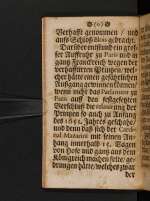 (6)
Verhafft genommen / und
auffs Schloß Blois gebracht.
Darüber entstund ein gros-
ser Auffruhr zu Paris und in
gantz Franckreich wegen der
verhaffteten Printzen / wel-
cher hätte einen gefährlichen
Außgang gewinnen können /
wenn nicht das Parlament zu
Paris auff den festgesetzten
der Printzen so auch zu Anfang
des 1651. Jahres geschahe /
und denn daß sich der Cardi-
nal Mazarin mit seinen An-
hang innerhalb 15. Tagen
von Hofe und gantz aus dem
Königreich machen solte / ge-
drungen hätte / welches zwar
der